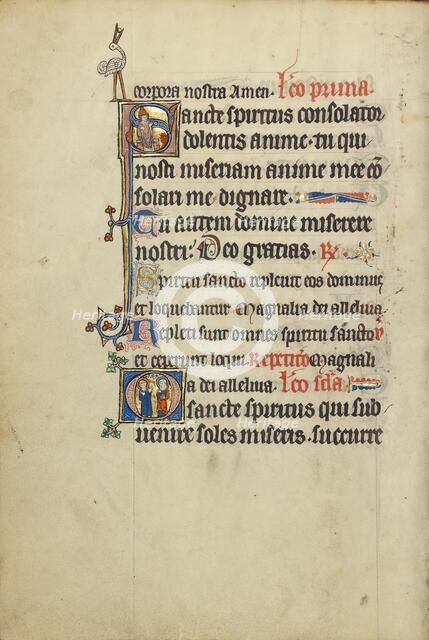 corpora nostra Amen. Lco prima.
Sancte spiritus consolator
dolentis anime. tu qui
nosti miseriam anime mee cō
solari me dignare.
Tu autem domine miserere
nostri. Deo gratias. R.
Spiritu sancto repleuit eos dominus
et loquebantur Magnalia dei alleluia
Repleti sunt omnes spiritu sancto V
et ceperunt loqui. Repetitio Magnali
a dei alleluia. Lco sc̄da.
O sancte spiritus qui sub
uenire soles miseris. succurre
Heritage